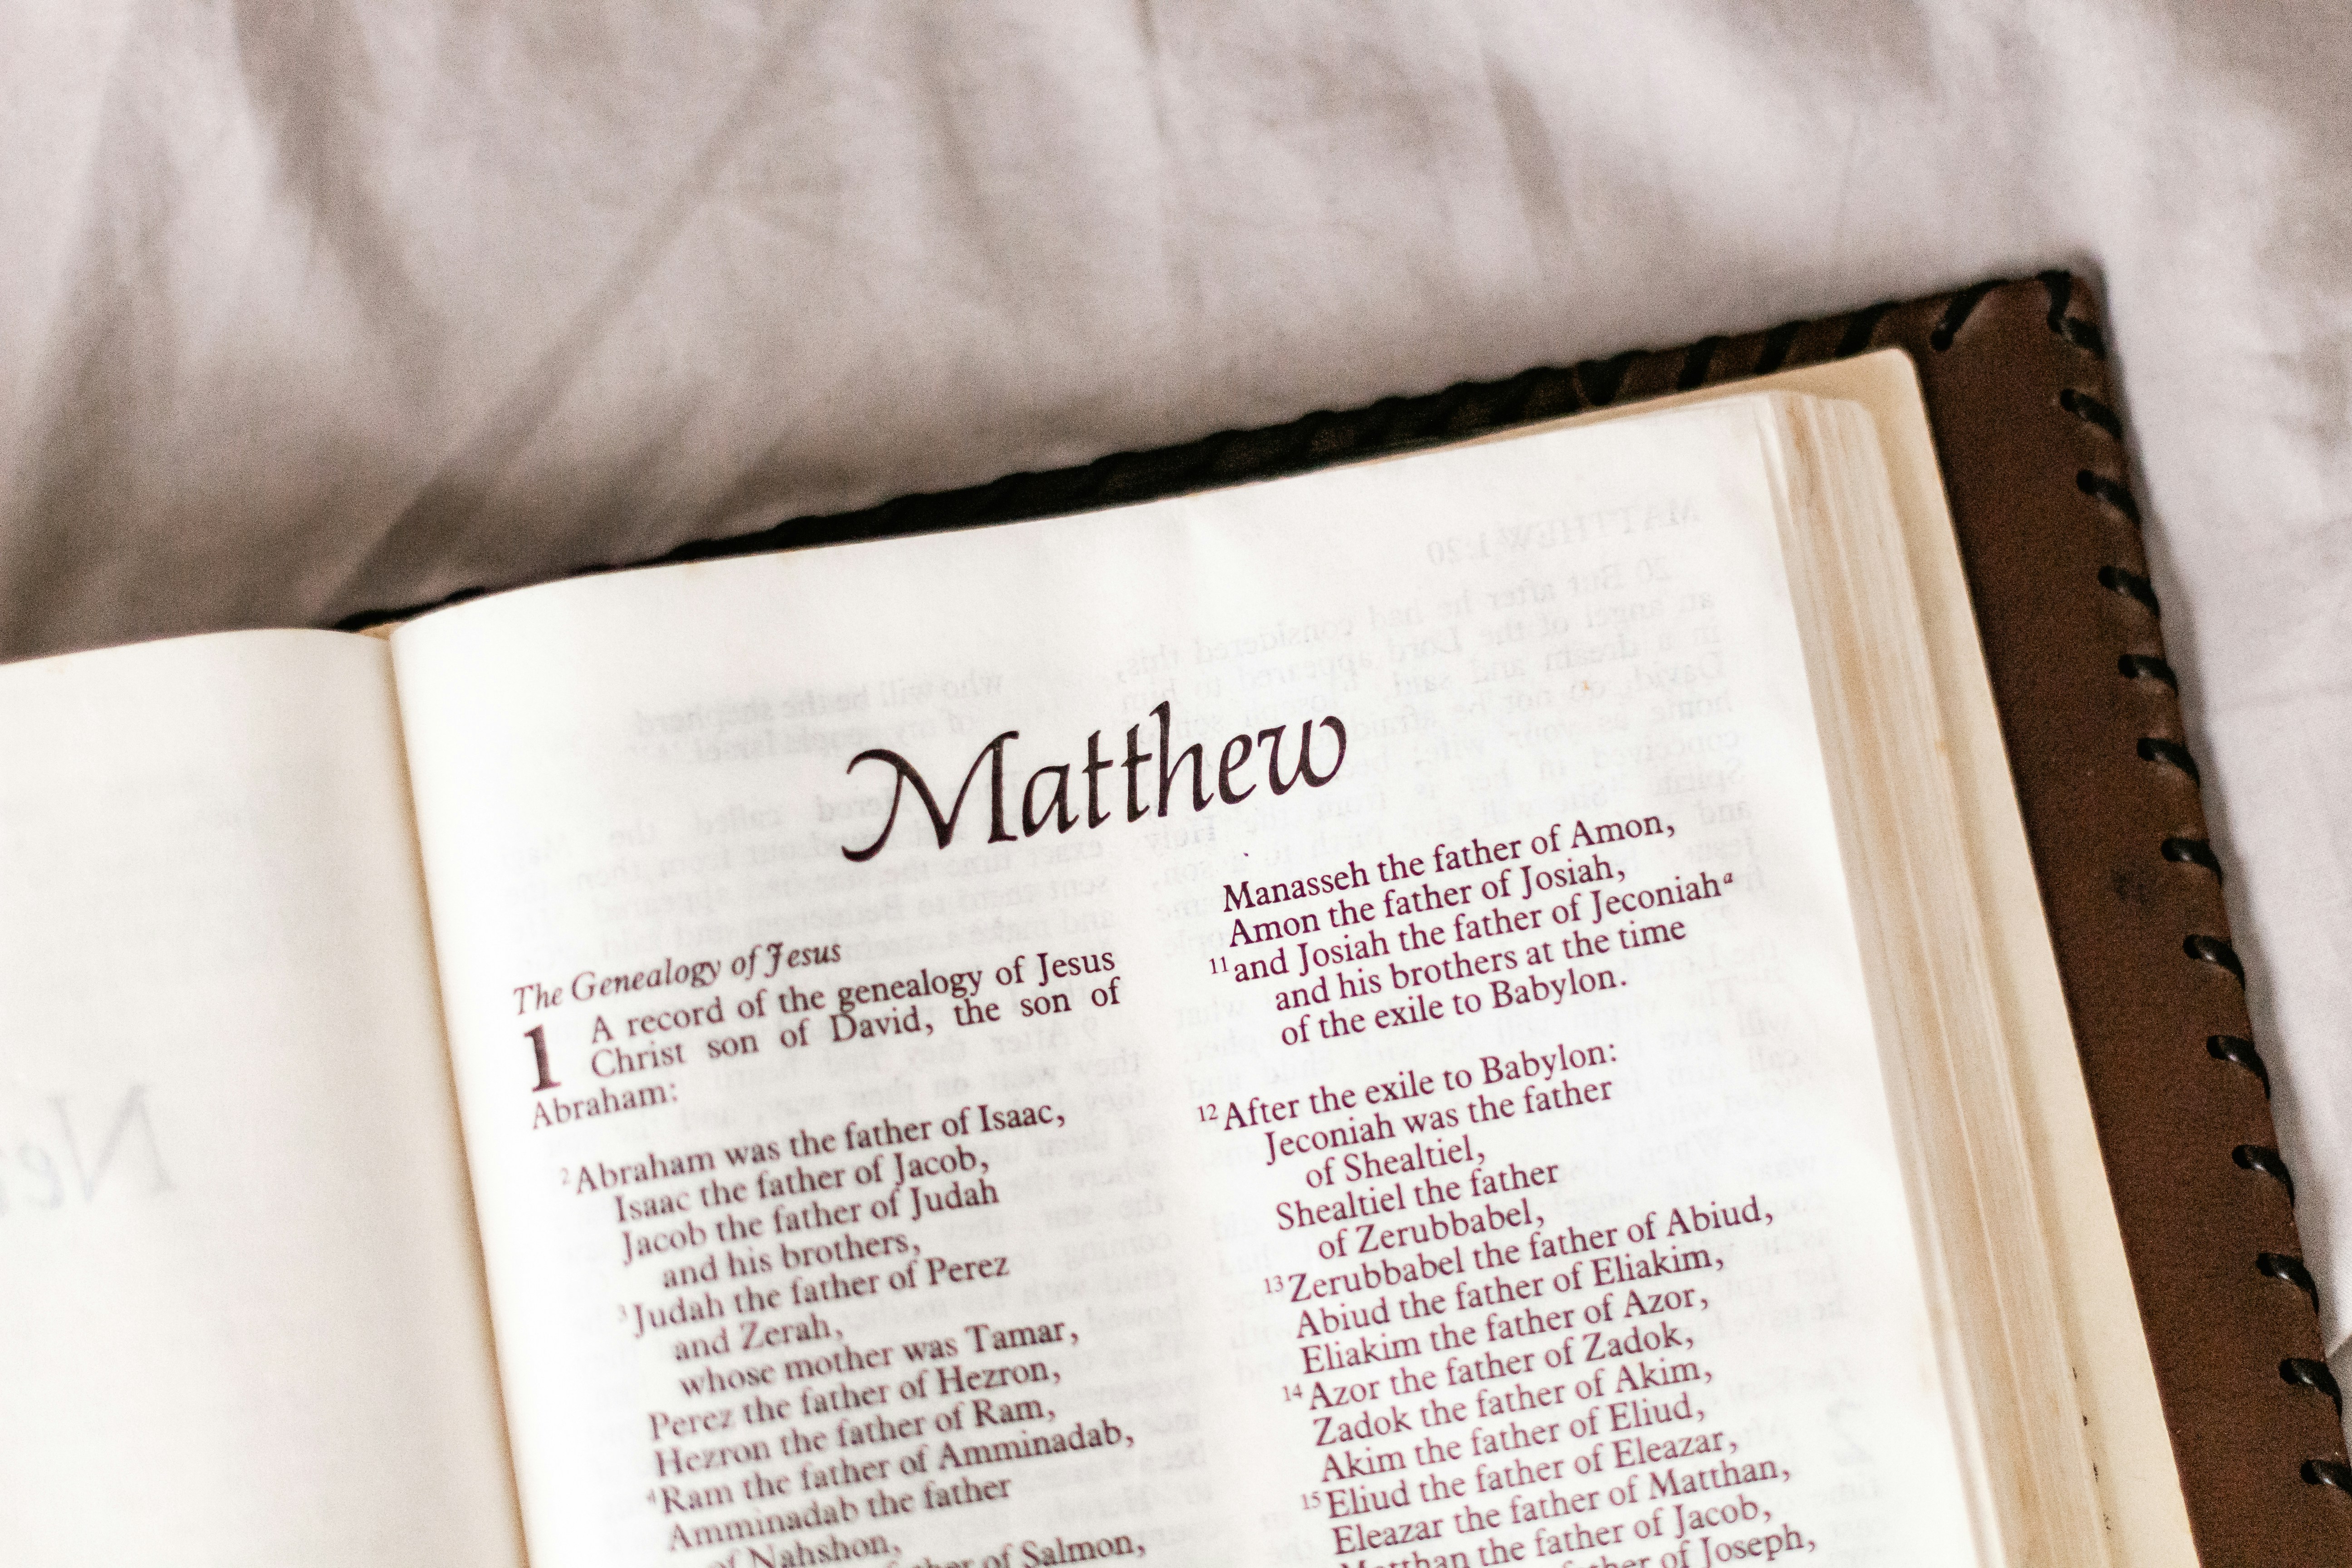 Matthew
The Genealogy of Jesus
1 A record of the genealogy of Jesus
Christ son of David, the son of
Abraham:
2Abraham was the father of Isaac,
Isaac the father of Jacob,
Jacob the father of Judah
and his brothers,
3Judah the father of Perez
and Zerah,
whose mother was Tamar,
Perez the father of Hezron,
Hezron the father of Ram,
4Ram the father of Amminadab,
Amminadab the father
of Nahshon,
of Salmon,
Manasseh the father of Amon,
Amon the father of Josiah,
11and Josiah the father of Jeconiaha
and his brothers at the time
of the exile to Babylon.
12After the exile to Babylon:
Jeconiah was the father
of Shealtiel,
Shealtiel the father
of Zerubbabel,
13Zerubbabel the father of Abiud,
Abiud the father of Eliakim,
Eliakim the father of Azor,
14Azor the father of Zadok,
Zadok the father of Akim,
Akim the father of Eliud,
15Eliud the father of Eleazar,
Eleazar the father of Matthan,
Matthan the father of Jacob,
of Joseph,